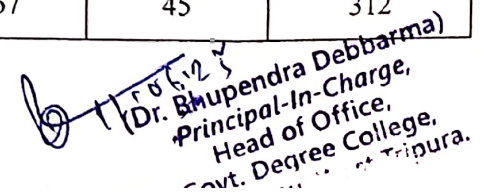 45 312
(Dr. Bhupendra Debbarma)
Principal-In-Charge,
Head of Office,
Govt. Degree College,
Tripura.